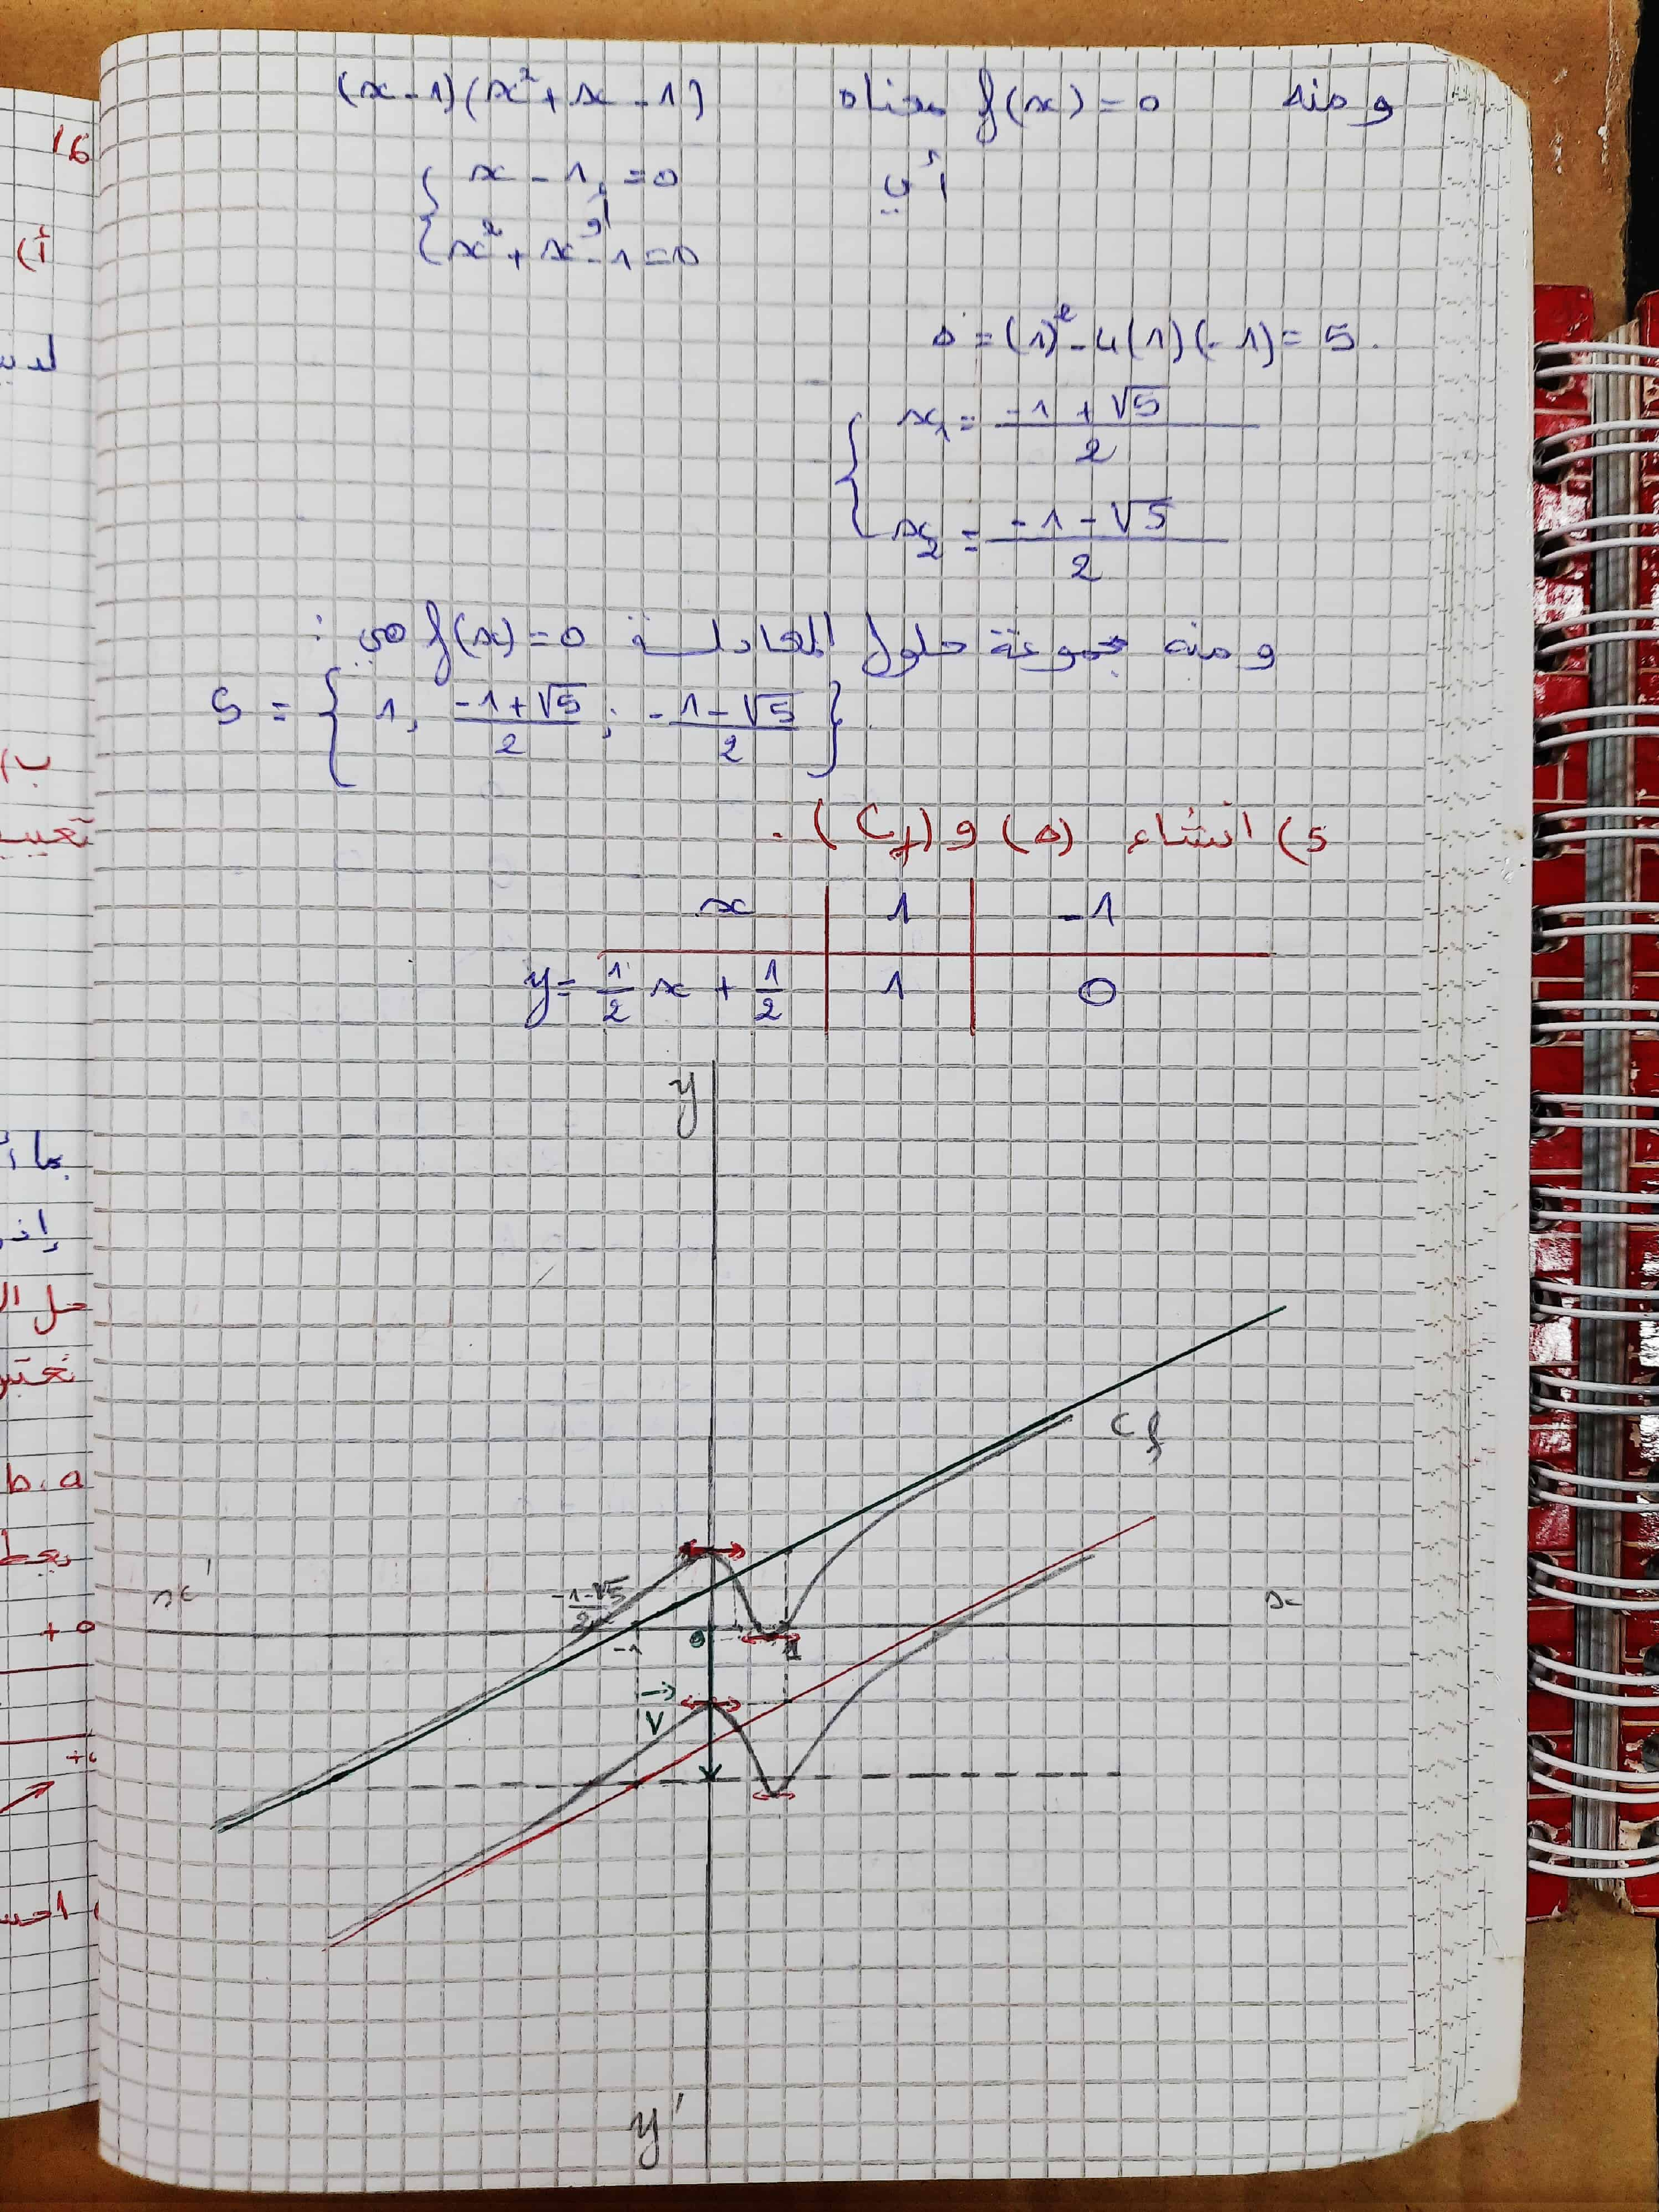 ومنه f(x) = 0 معناه (x - 1)(x² + x - 1)
أي { x - 1 = 0
أو
x² + x - 1 = 0
Δ = (1)² - 4(1)(-1) = 5.
{ x₁ = (-1 + √5)/2
x₂ = (-1 - √5)/2
ومنه مجموعة حلول المعادلة f(x) = 0 هي :
S = { 1, (-1+√5)/2 ; (-1-√5)/2 }
5) انشاء (Δ) و (Cf).
x | 1 | -1
y = 1/2 x + 1/2 | 1 | 0
y
Cf
x' (-1-√5)/2 x
-1 0 1
V
y'
16
أ)
ب)
b.a
+∞